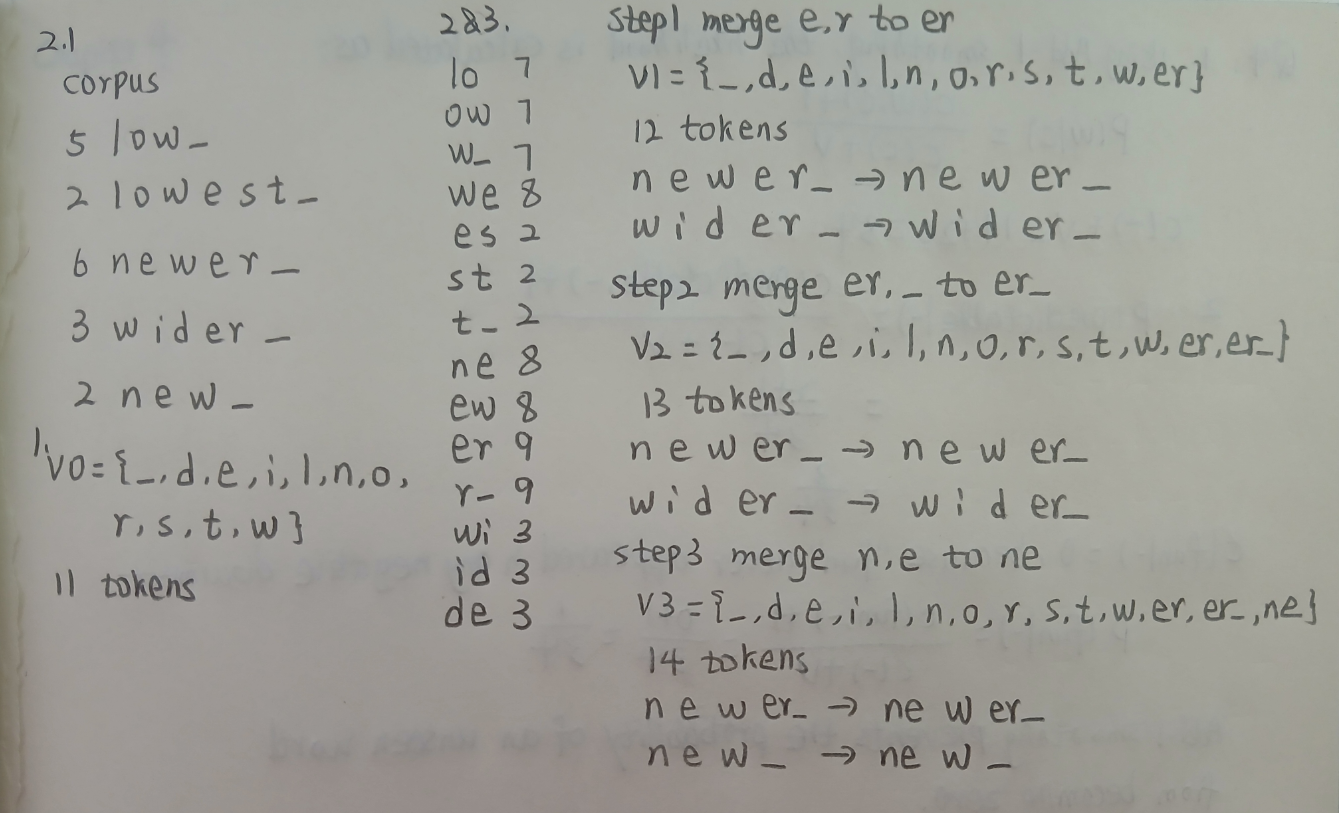 2.1
corpus
5 low_
2 lowest_
6 newer_
3 wider_
2 new_
1. V0={_,d,e,i,l,n,o,
r,s,t,w}
11 tokens
2&3.
lo 7
ow 7
w_ 7
we 8
es 2
st 2
t_ 2
ne 8
ew 8
er 9
r_ 9
wi 3
id 3
de 3
step1 merge e,r to er
V1={_,d,e,i,l,n,o,r,s,t,w,er}
12 tokens
n e w e r_ → n e w er_
w i d er_ → w i d er_
step2 merge er,_ to er_
V2={_,d,e,i,l,n,o,r,s,t,w,er,er_}
13 tokens
n e w er_ → n e w er_
w i d er_ → w i d er_
step3 merge n,e to ne
V3={_,d,e,i,l,n,o,r,s,t,w,er,er_,ne}
14 tokens
n e w er_ → ne w er_
n e w_ → ne w_